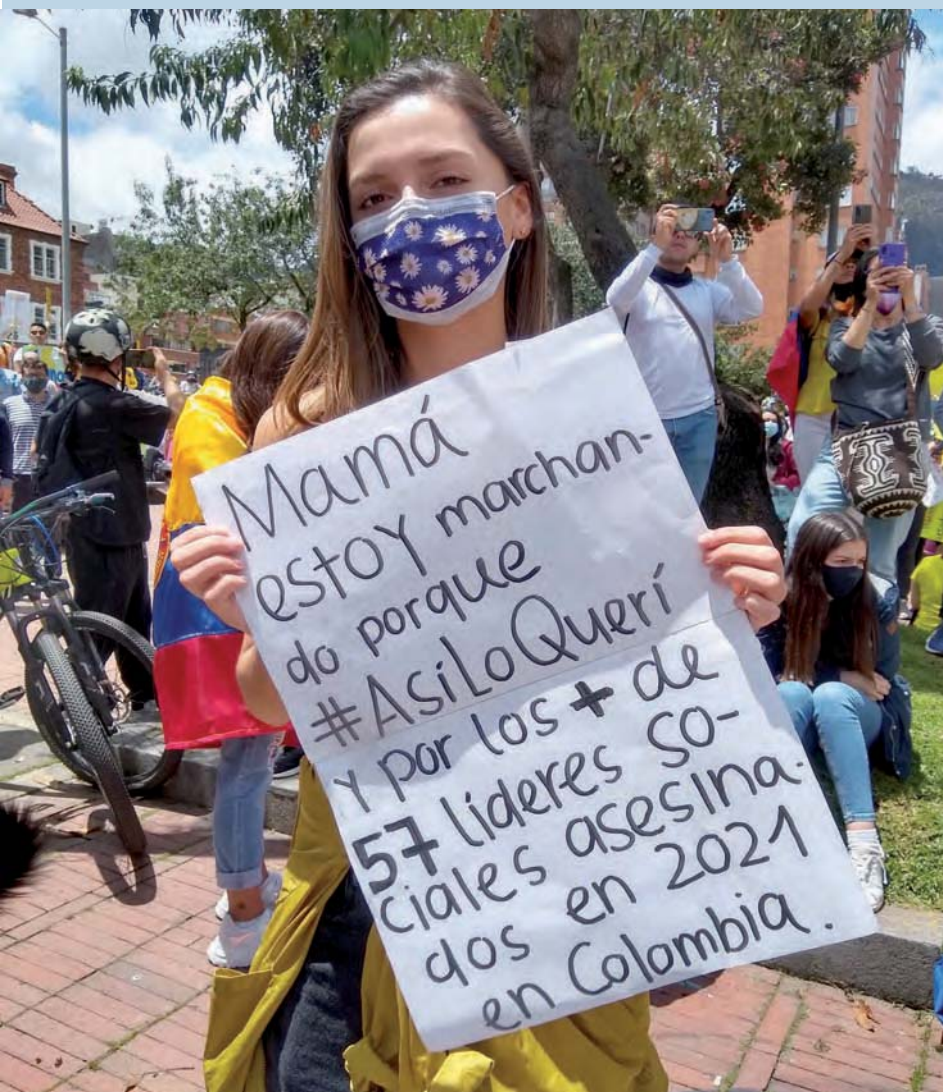 Mamá
estoy marchan-
do porque
#AsiLoQuerí
y por los + de
57 líderes so-
ciales asesina-
dos en 2021
en Colombia.